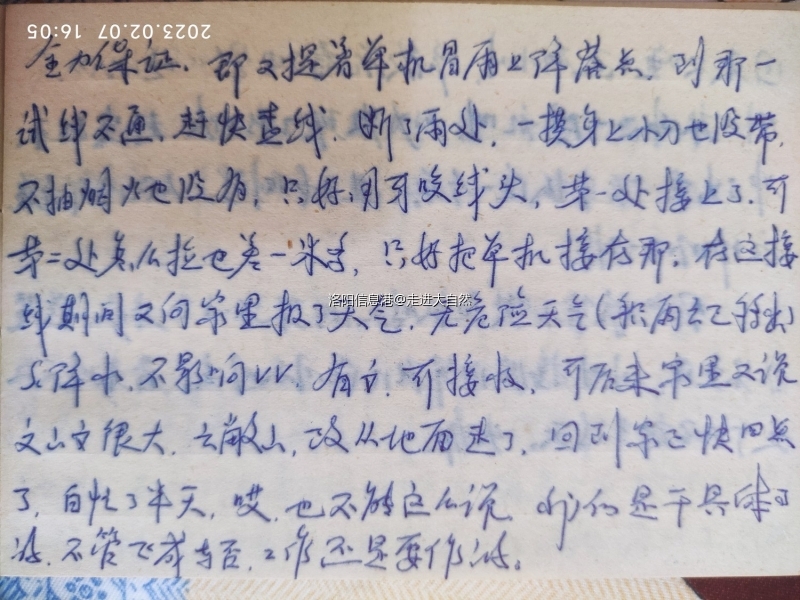 2023.02.07 16:05
全力保证。即又提着单机冒雨上降落点。到那一
试线不通,赶快查线。断了两处,一摸身上小刀也没带,
不抽烟火也没有,只好用牙咬线头,第一处接上了,可
第二处怎么拉也差一米多,只好把单机接在那。在这接
线期间又向家里报了天气,无危险天气(积雨云已移出)
降水,不影响VV,有云,可接收,可后来家里又说
文山文很大,云蔽山,改从地面走了,回到家已快四点
了,白忙了半天,哎,也不能这么说,我们是干具体
不管飞成与否,工作还是要作的。
洛阳信息港@走进大自然